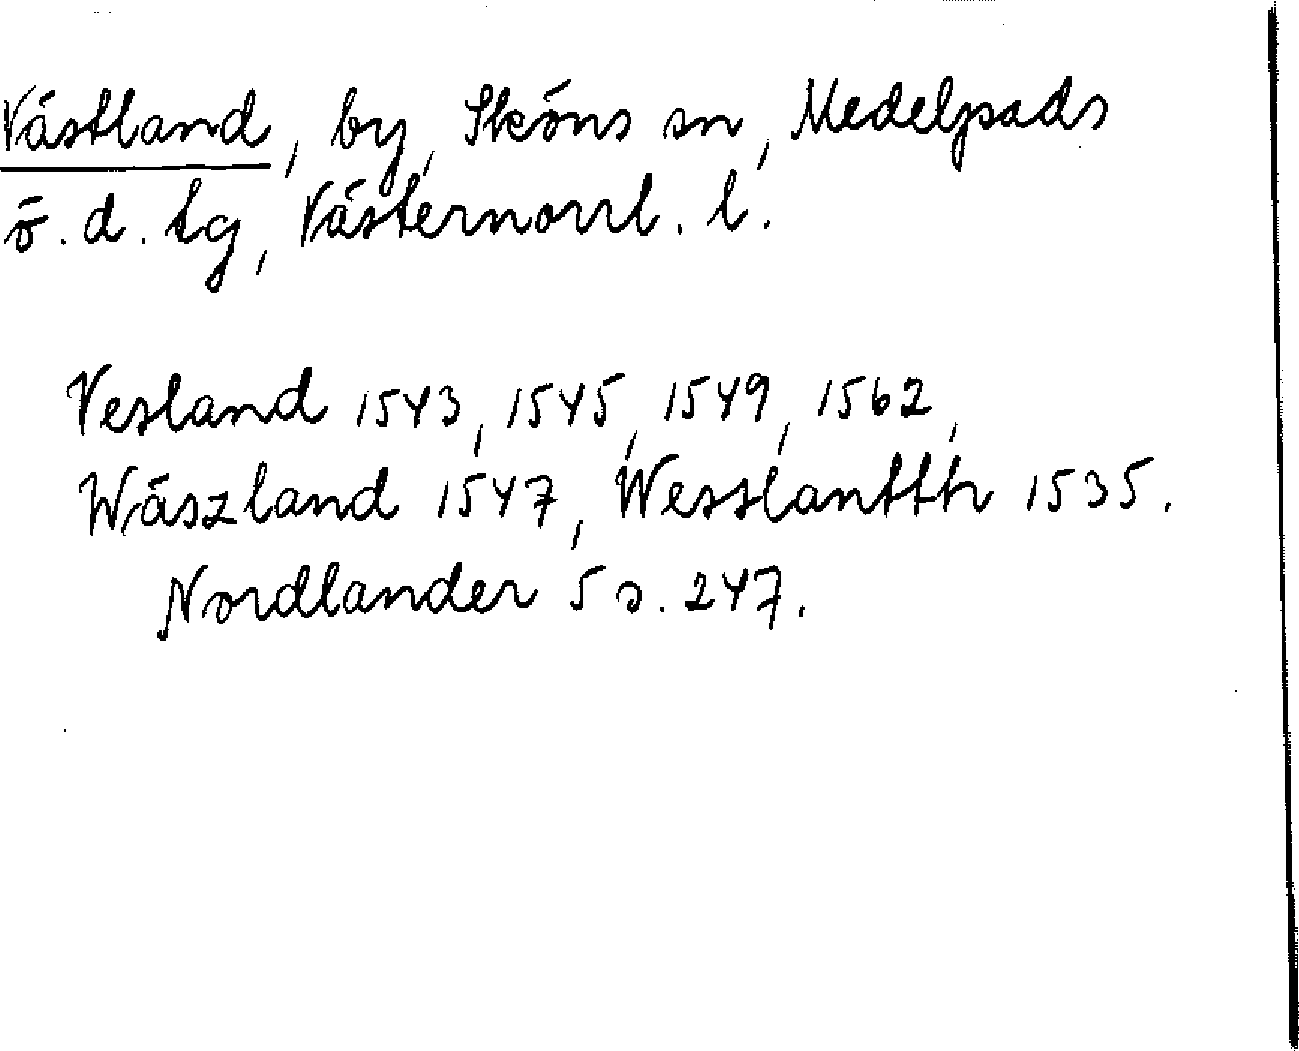 Västland, by, Sköns sn, Medelpads
ö. d. tg, Västernorrl. l.
Vesland 1543, 1545, 1549, 1562,
Wäszland 1547, Wesslanttth 1535.
Nordlander 5 s. 247.